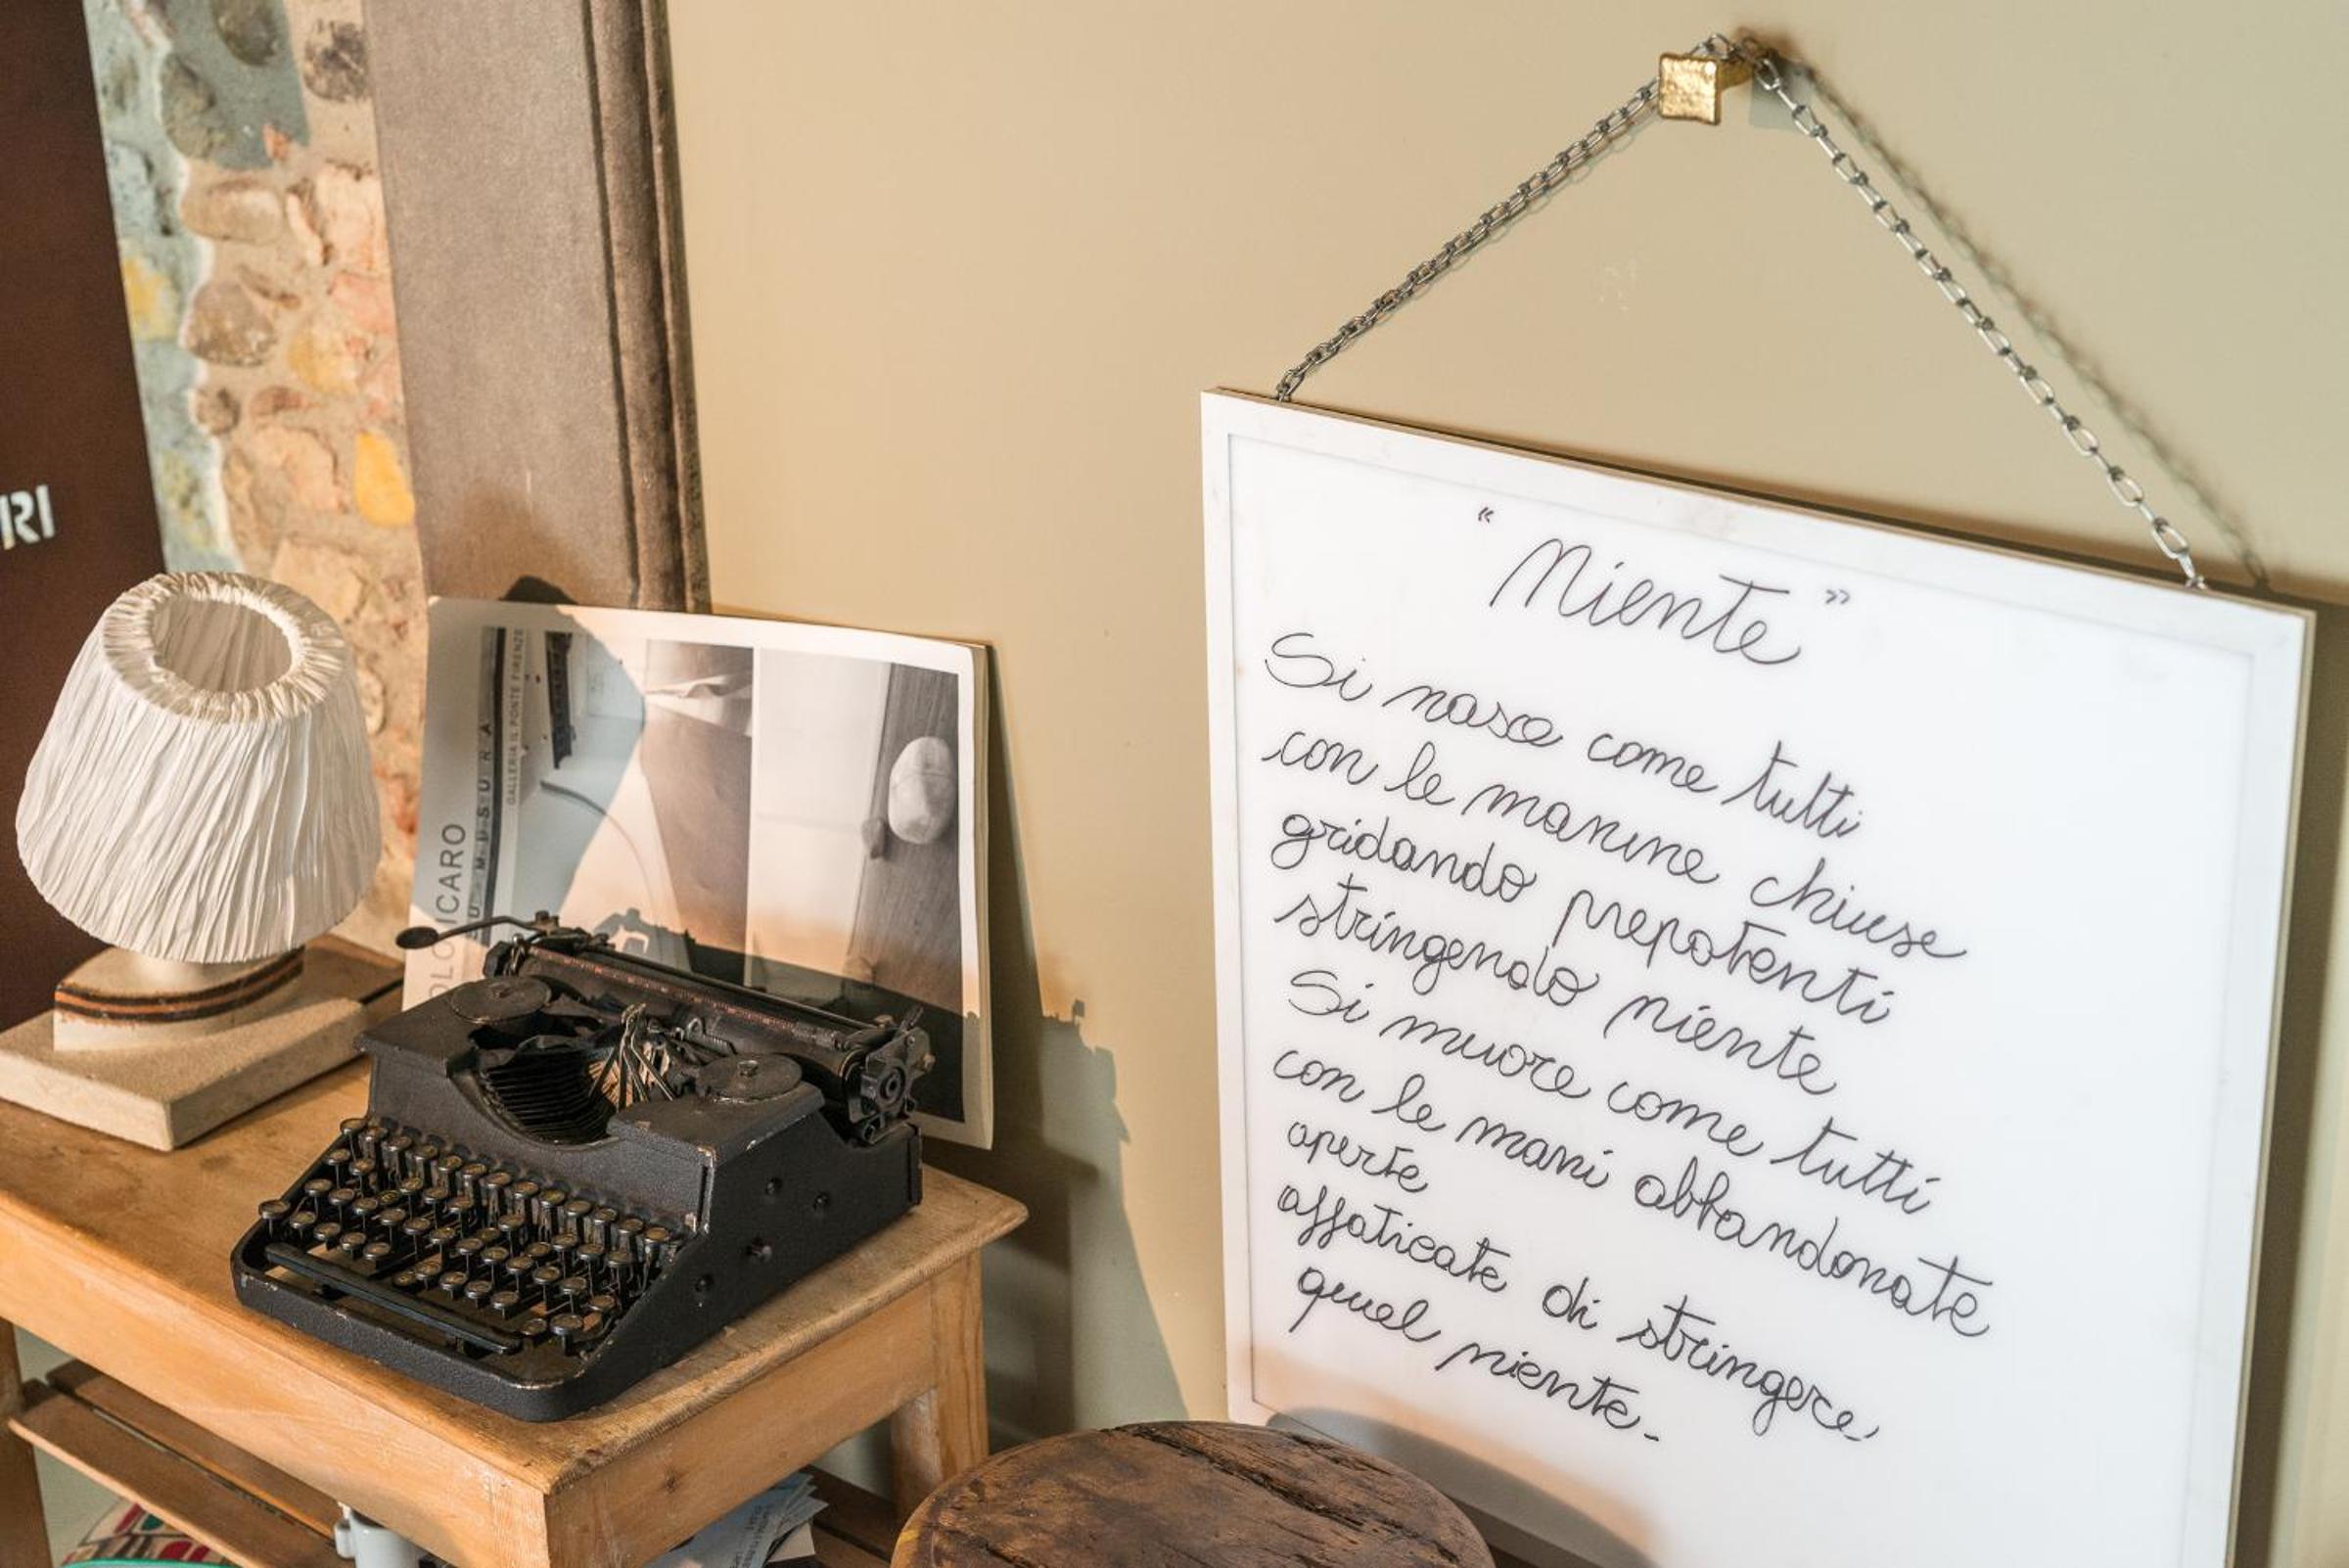 RI
ICARO
GALLERIA IL PONTE FIRENZE
"Niente"
Si nasce come tutti
con le manine chiuse
gridando prepotenti
stringendo niente
Si muore come tutti
con le mani abbandonate
aperte
affaticate di stringere
quel niente.-